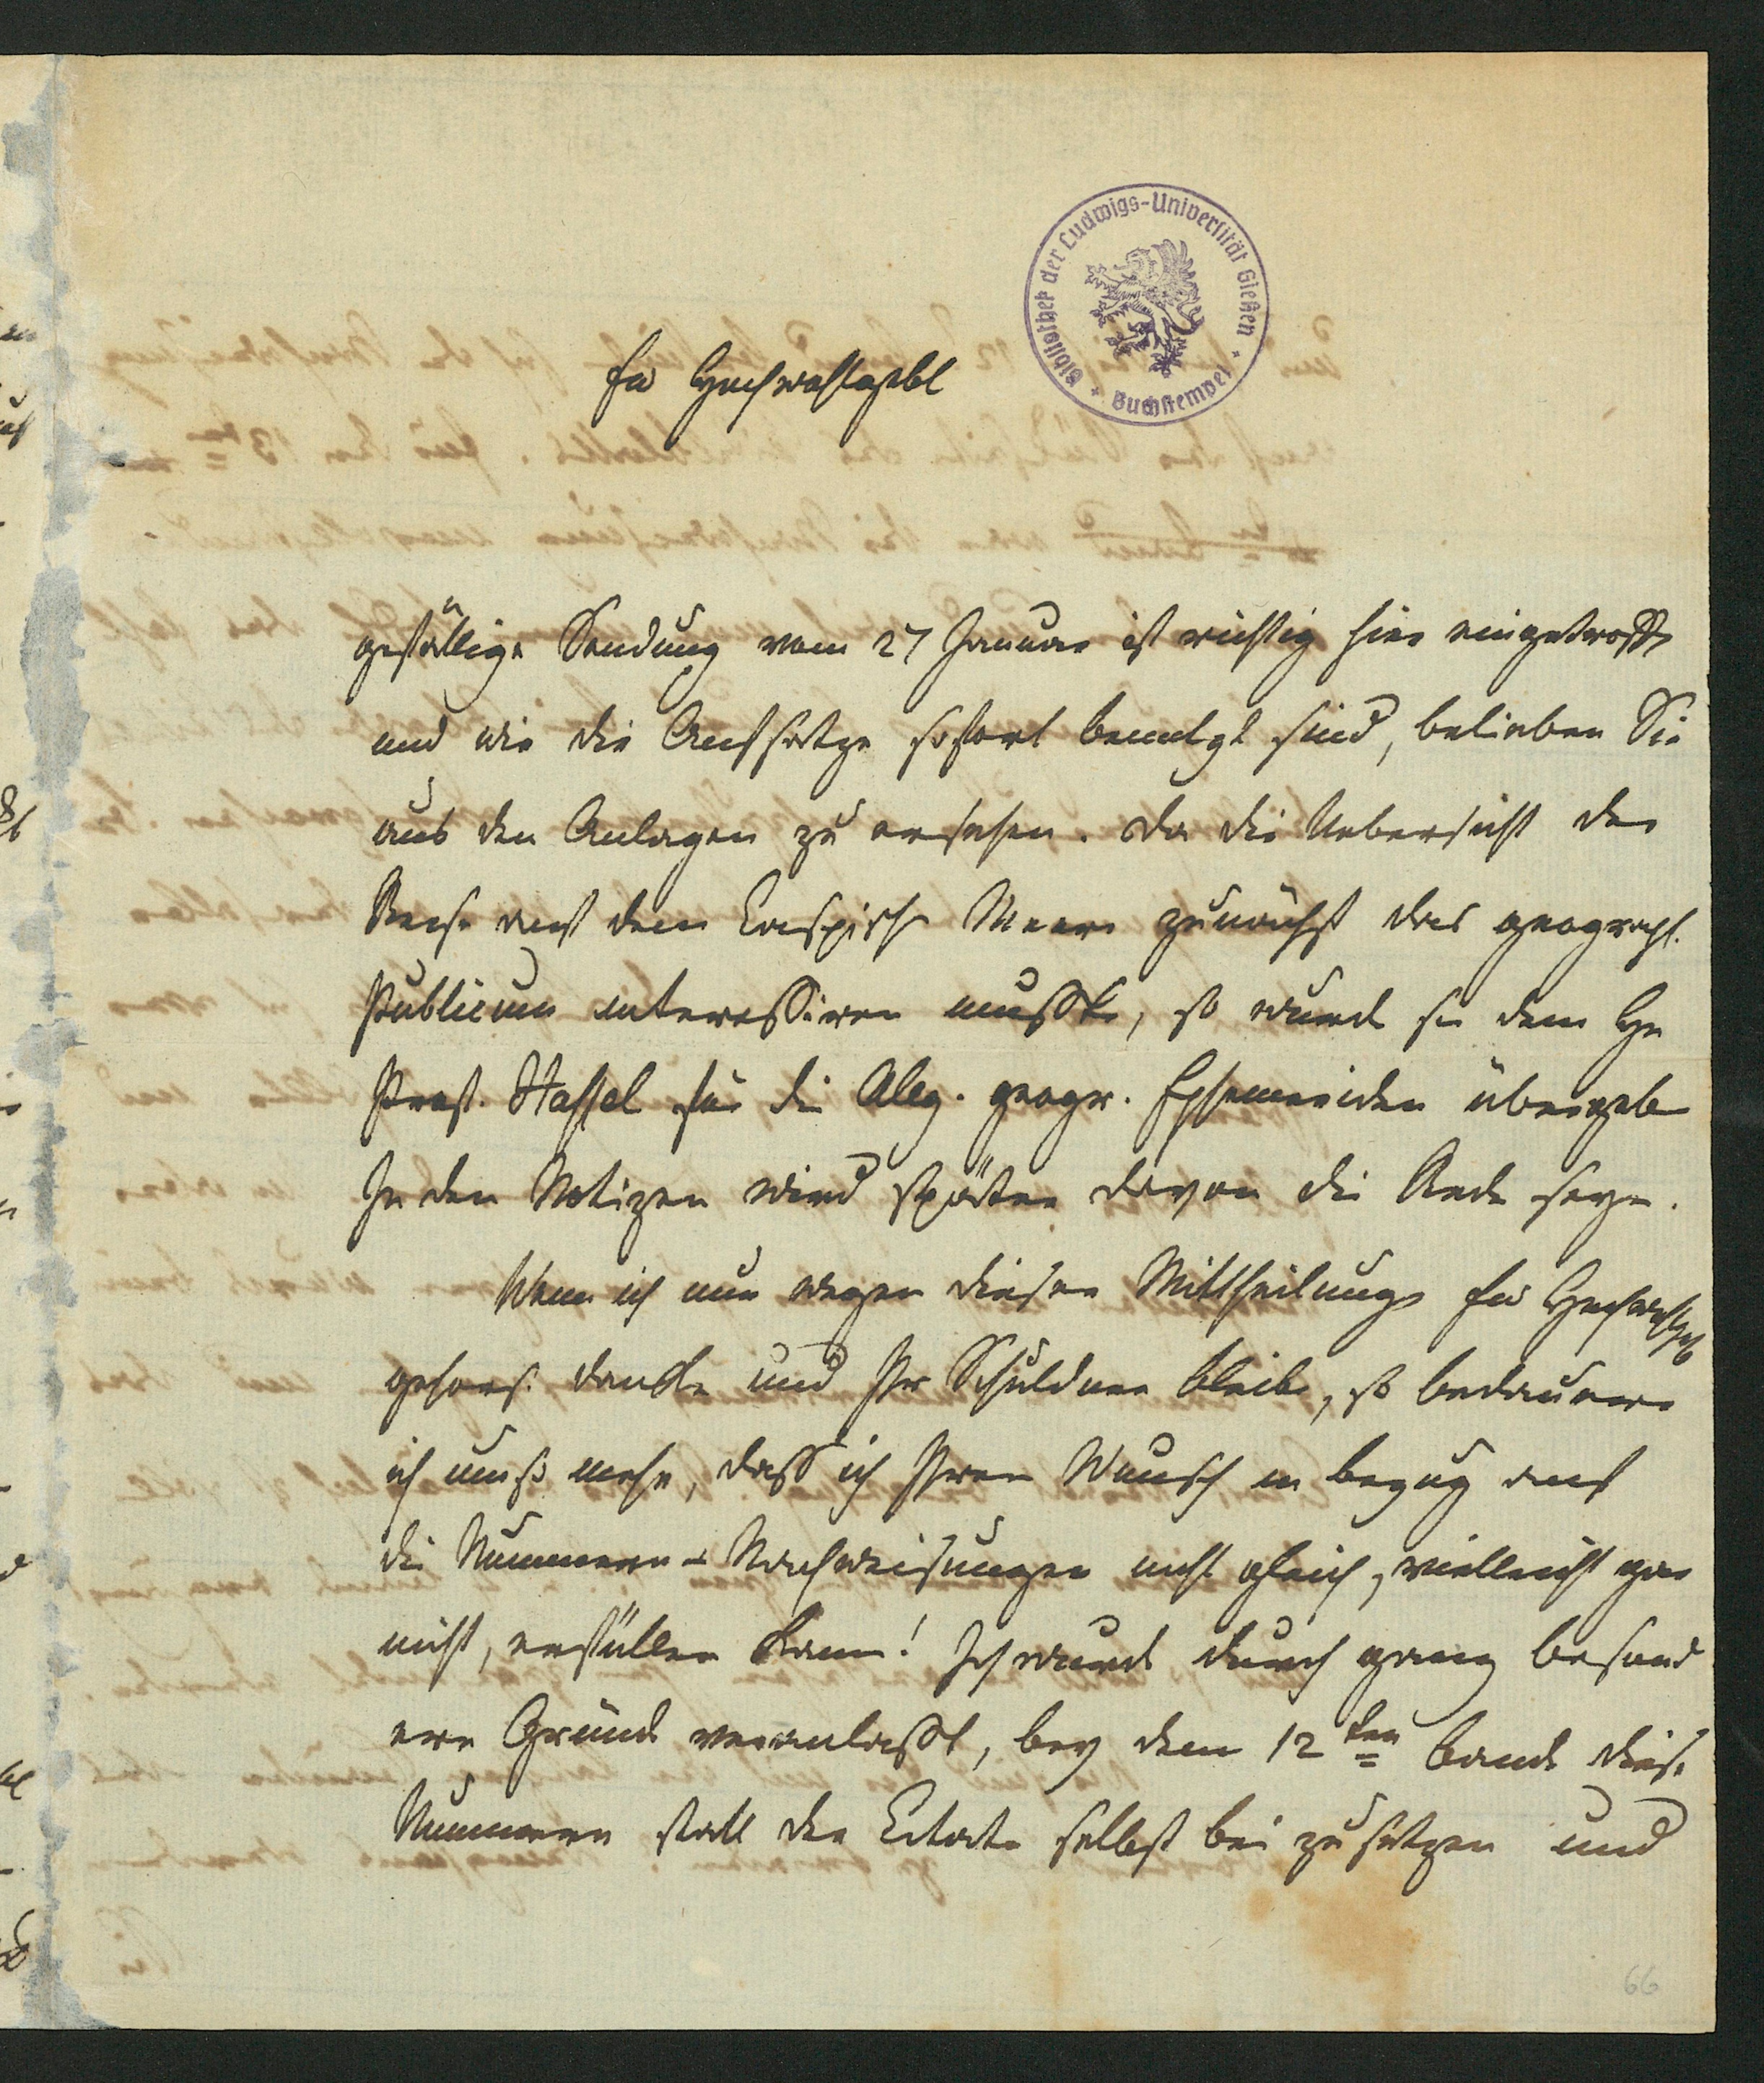 Bibliothek der Ludwigs-Universität Gießen
Buchstempel
Ew Hochwohlgebl
gefällige Sendung vom 27 Januar ist richtig hier eingetroffen
und wie die Aufsätze sofort benutzt sind, belieben Sie
aus den Anlagen zu ersehen. Da die Uebersicht der
Reise nach dem Caspischen Meere zunächst das geograph.
Publicum interessiren musste, so wurde sie dem Hn
Prof. Hassel für die Allg. geogr. Ephemeriden übergeben
In den Notizen wird später davon die Rede seyn.
Wenn ich nun wegen dieser Mittheilungen Ew Hochwohlgeb
gehors. danke und Ihr Schuldner bleibe, so bedauere
ich um so mehr, dass ich Ihren Wunsch in bezug auf
die Nummern-Nachweisungen nicht gleich, vielleicht gar
nicht, erfüllen kann! Ich wurde durch ganz besond
ere Gründe veranlasst, bey dem 12ten Bande diese
Nummern statt der Citate selbst bei zu setzen und
66